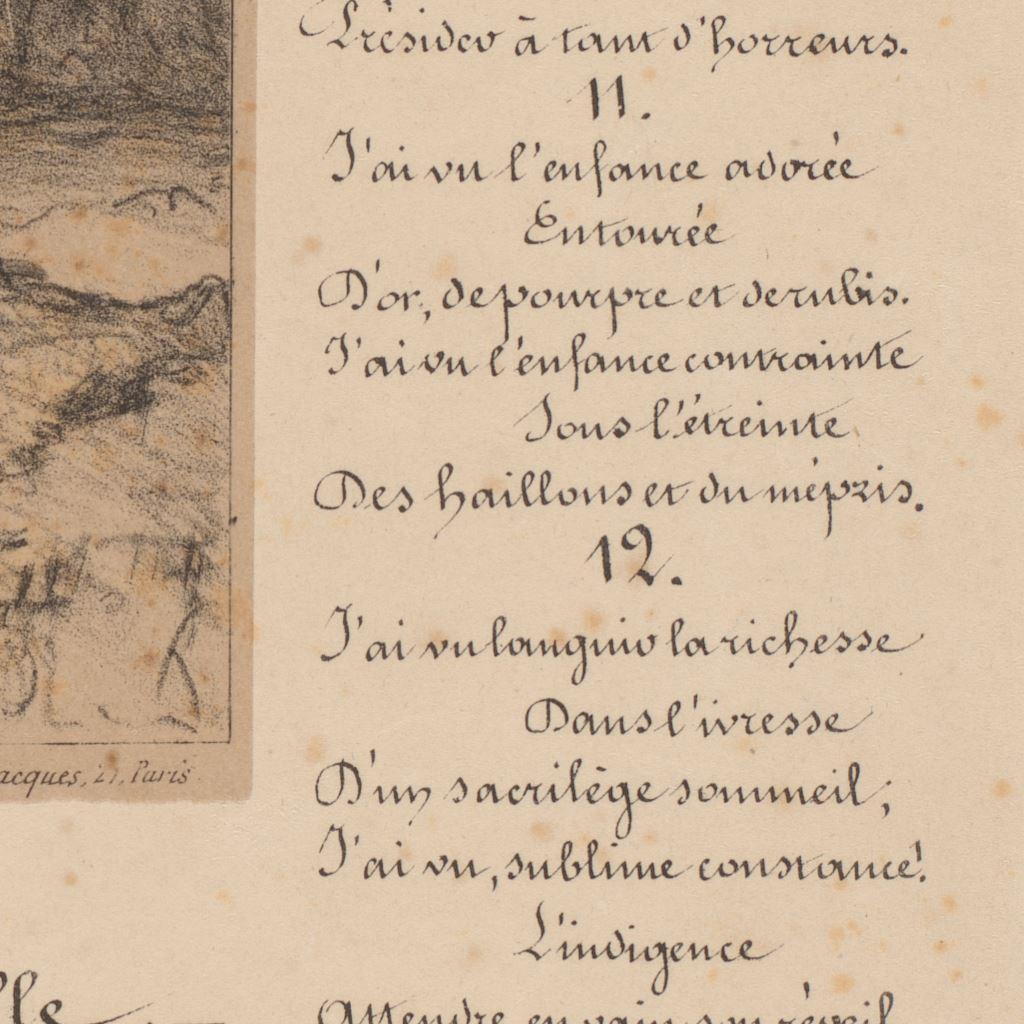 Présider à tant d'horreurs.
11.
J'ai vu l'enfance adorée
Entourée
D'or, de pourpre et de rubis.
J'ai vu l'enfance contrainte
Sous l'étreinte
Des haillons et du mépris.
12.
J'ai vu languir la richesse
Dans l'ivresse
D'un sacrilège sommeil;
J'ai vu, sublime constance!
L'indigence
Attendre en vain son réveil
acques, 27, Paris